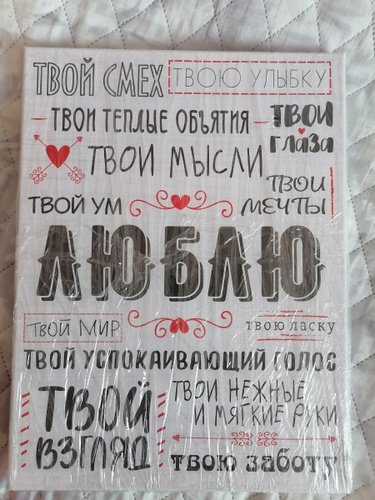 ТВОЙ СМЕХ
ТВОЮ УЛЫБКУ
ТВОИ ТЕПЛЫЕ ОБЪЯТИЯ
ТВОИ
ГЛАЗА
ТВОИ МЫСЛИ
ТВОЙ УМ
ТВОИ
МЕЧТЫ
ЛЮБЛЮ
ТВОЙ МИР
ТВОЮ ЛАСКУ
ТВОЙ УСПОКАИВАЮЩИЙ ГОЛОС
ТВОЙ
ВЗГЛЯД
ТВОИ НЕЖНЫЕ
И МЯГКИЕ РУКИ
ТВОЮ ЗАБОТУ